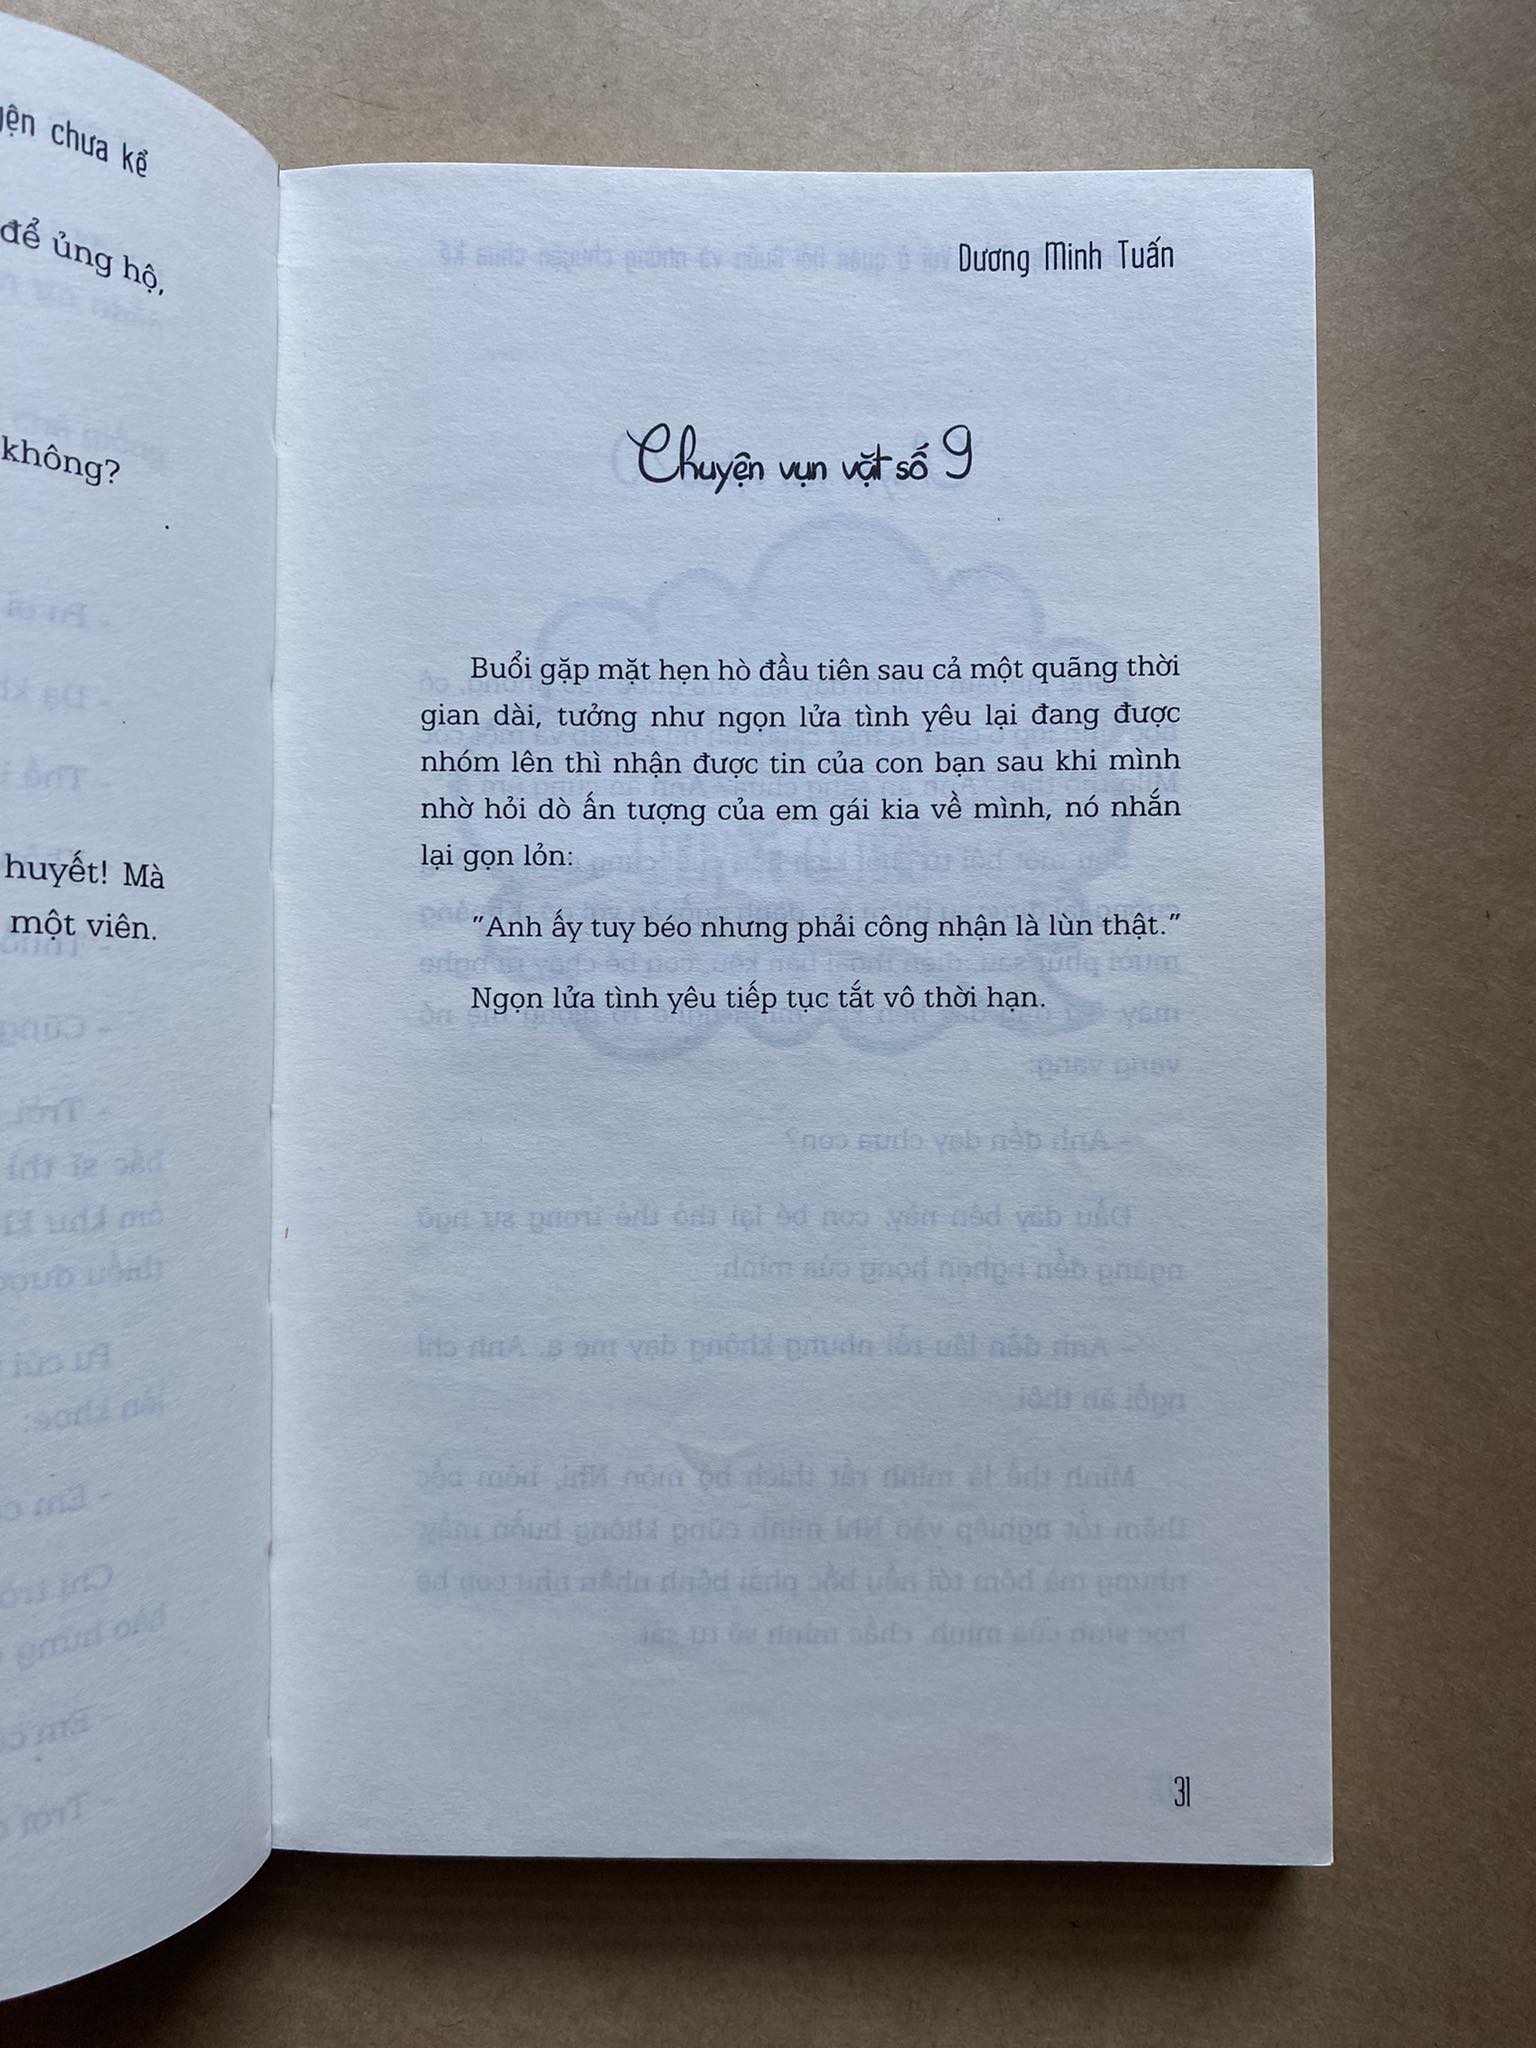 chưa kể
để ủng hộ,
không?
huyết! Mà
một viên.
Dương Minh Tuấn
Chuyện vụn vặt số 9
Buổi gặp mặt hẹn hò đầu tiên sau cả một quãng thời
gian dài, tưởng như ngọn lửa tình yêu lại đang được
nhóm lên thì nhận được tin của con bạn sau khi mình
nhờ hỏi dò ấn tượng của em gái kia về mình, nó nhắn
lại gọn lỏn:
"Anh ấy tuy béo nhưng phải công nhận là lùn thật."
Ngọn lửa tình yêu tiếp tục tắt vô thời hạn.
31